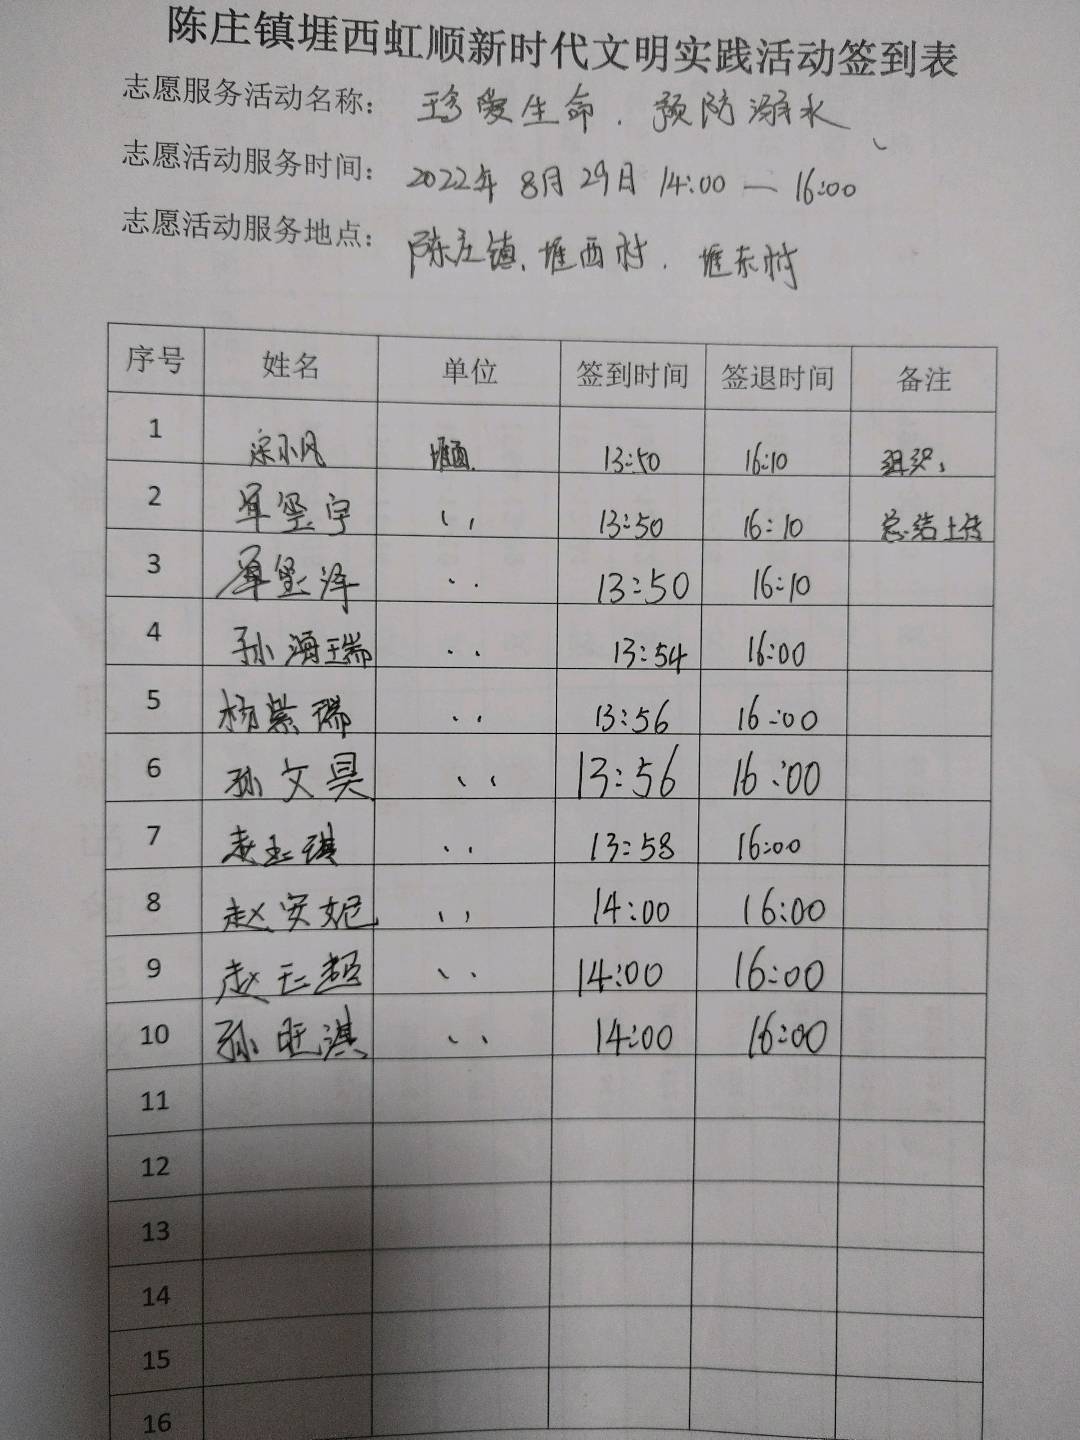 陈庄镇堐西虹顺新时代文明实践活动签到表
志愿服务活动名称: 珍爱生命.预防溺水
志愿活动服务时间: 2022年8月29日14:00—16:00
志愿活动服务地点: 陈庄镇.堐西村.堐东村
序号 姓名 单位 签到时间 签退时间 备注
1 宋小风 堐西. 13:50 16:10 组织,
2 单玺宇 、, 13:50 16:10 总结上传
3 单玺泽 .. 13:50 16:10
4 孙海瑞 .. 13:54 16:00
5 杨紫瑞 .. 13:56 16:00
6 孙文具 、、 13:56 16:00
7 袁玉琪 .. 13:58 16:00
8 赵安妮 、, 14:00 16:00
9 赵天超 、. 14:00 16:00
10 孙旺淇 、、 14:00 16:00
11
12
13
14
15
16